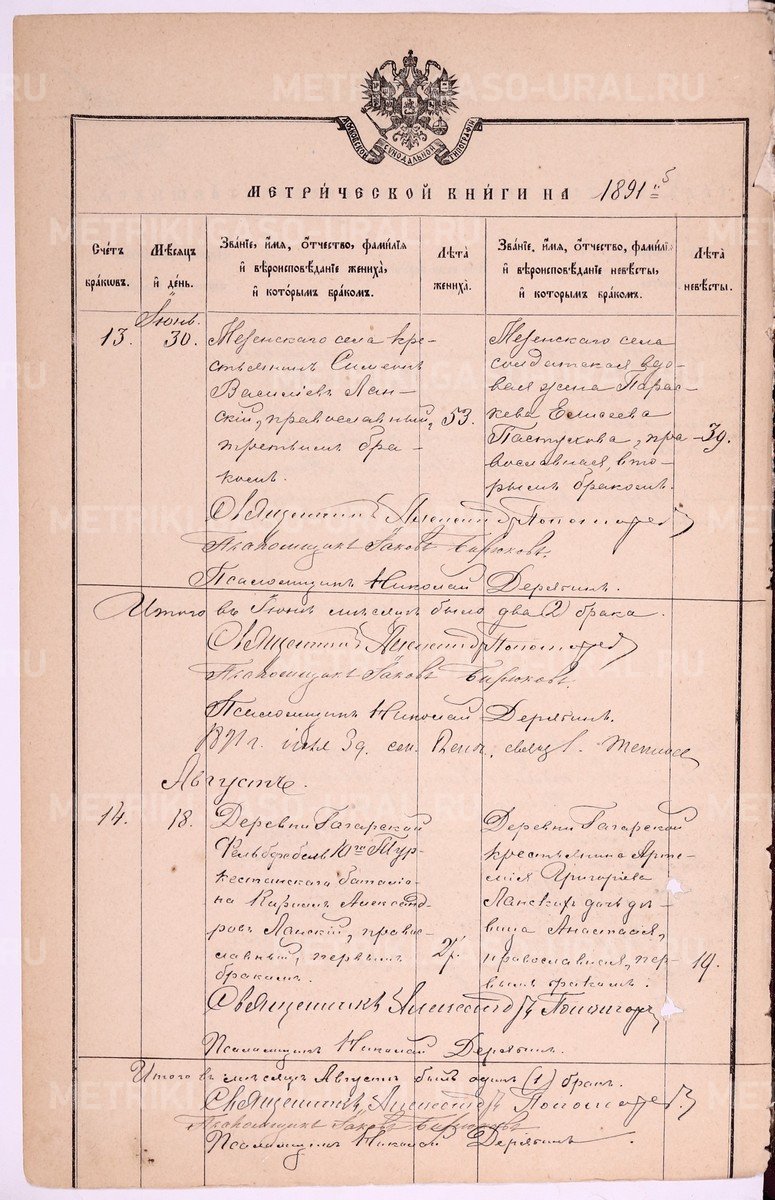 МОСКОВСКОЙ СѴНОДАЛЬНОЙ ТИПОГРАФІИ
МЕТРИ́ЧЕСКОЙ КНИ́ГИ НА 1891
Сче́тъ бра́ковъ.
Мѣ́сѧцъ и҆ де́нь.
Зва́нїе, и҆́мѧ, ѻ҆́тчество, фами́лїѧ и҆ вѣроисповѣ́данїе жениха̀, и҆ кото́рымъ бра́комъ.
Лѣта̀ жениха̀.
Зва́нїе, и҆́мѧ, ѻ҆́тчество, фами́лїѧ и҆ вѣроисповѣ́данїе невѣ́сты, и҆ кото́рымъ бра́комъ.
Лѣта̀ невѣ́сты.
Іюнь.
13.
30.
Мезенскаго села кре-
стьянинъ Симеонъ
Василіевъ Лан-
скій, православный,
третьимъ бра-
комъ.
53.
Мезенскаго села
солдатская вдо-
вая жена Парас-
кева Елисеева
Пастухова, пра-
вославная, вто-
рымъ бракомъ.
39.
Священникъ Александръ Пономаревъ
Псаломщикъ Іаковъ Бирюковъ.
Псаломщикъ Николай Дерябинъ.
Итого въ Іюнѣ мѣсяцѣ было два (2) брака.
Священникъ Александръ Пономаревъ
Псаломщикъ Іаковъ Бирюковъ.
Псаломщикъ Николай Дерябинъ.
1891 г. іюля 39. свящ.
Августъ.
14.
18.
Деревни Гагарской
Фельдфебель Туркестанскаго баталіо-
на Кирилъ Александ-
ровъ Ланскій, правос-
лавный, первымъ
бракомъ.
27.
Деревни Гагарской
крестьянина Арте-
мія Григоріева
Ланскихъ дочь дѣ-
вица Анастасія,
православная, пер-
вымъ бракомъ.
19.
Священникъ Александръ Пономаревъ
Псаломщикъ Николай Дерябинъ.
Итого въ мѣсяцѣ Августѣ былъ одинъ (1) бракъ.
Священникъ Александръ Пономаревъ.
Псаломщикъ Іаковъ Бирюковъ
Псаломщикъ Николай Дерябинъ.
METRIKI.GASO-URAL.RU